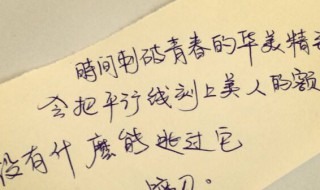 時间刺破青春的华美精
会把平行线刻上美人的额
没有什麼能逃过它